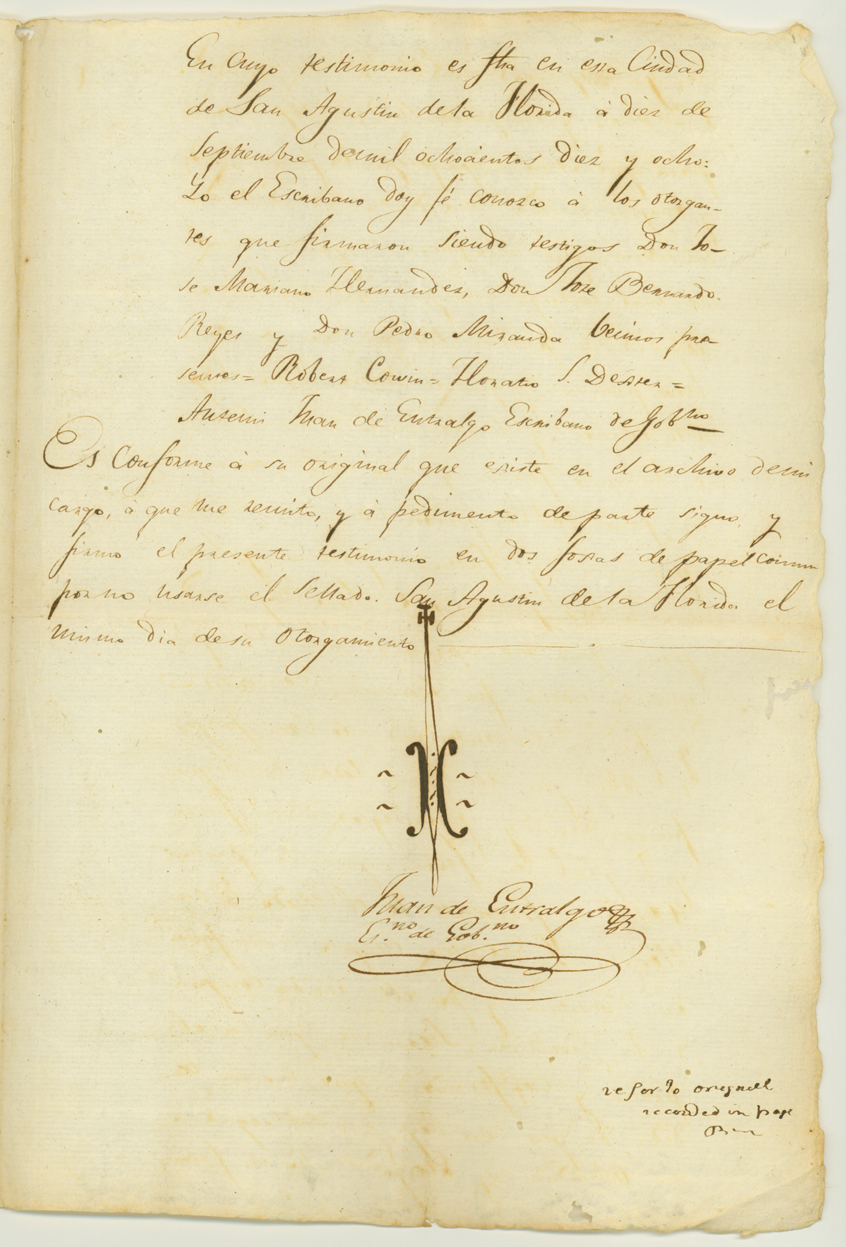 En cuyo testimonio es fha en esta Ciudad
de San Agustin de la Florida á diez de
Septiembre demil ochocientos diez y ocho:
Yo el Escribano doy fé conozco á los otorgan-
tes que firmaron siendo testigos Don Jo-
se Mariano Hernandez, Don Jose Bernardo
Reyes y Don Pedro Miranda Vecinos pre
sentes= Robert Cowin= Horatio S. Dexter=
Antemi Juan de Entralgo Escribano de Gobno
Es Conforme á su original que existe en el archivo demi
cargo, á que me remito, y á pedimento de parte signo y
firmo el presente testimonio en dos foxas de papel comun
por no usarse el Sellado. San Agustin de la Florida el
mismo dia de su Otorgamiento
Juan de Entralgo
Es.no de Gob.no
orignall
recorded in page